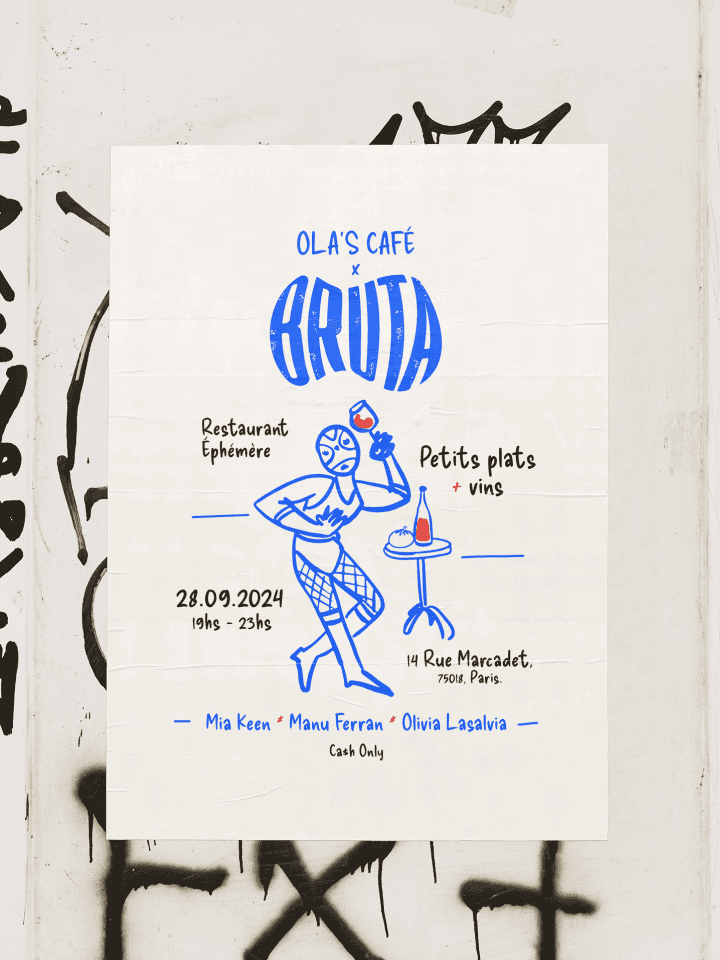 OLA'S CAFÉ
x
BRUTA
Restaurant
Éphémère
Petits plats
+ vins
28.09.2024
19hs - 23hs
14 Rue Marcadet,
75018, Paris.
— Mia Keen * Manu Ferran * Olivia Lasalvia —
Ca$h Only